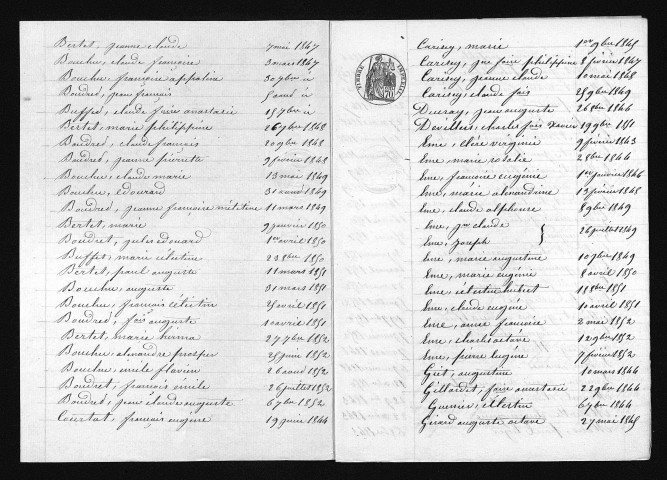 Bertet, jeanne claude 7 mai 1847
Bouclier, claude françoise 3 mars 1847
Bouclier, françoise appoline 30 7bre id
Boudret, jean françois 5 aout id
Buffet, claude foise anastasie 15 7bre id
Bertet, marie philippine 26 7bre 1848
Boudret, claude françois 20 9bre 1848
Boudret, jeanne pierrette 9 février 1848
Bouclier, claude marie 13 mai 1849
Bouclier, édouard 31 aout 1849
Boudret, jeanne françoise 11 mars 1849
Bertet, marie 9 janvier 1850
Boudret, jules édouard 1er avril 1850
Buffet, marie célestine 23 8bre 1850
Bertet, paul auguste 11 mars 1851
Bouclier, auguste 31 mars 1851
Bouclier, françois célestin 25 avril 1851
Boudret, fois auguste 10 avril 1851
Bertet, marie 27 7bre 1852
Bouclier, alexandre prosper 25 juin 1852
Bouclier, émile flavien 26 aout 1852
Boudret, françois émile 26 juillet 1852
Boudret, jean claude auguste 6 7bre 1852
Courtot, françois eugène 19 juin 1844
Carisey, marie 1er 9bre 1845
Carisey, jne foise philippine 8 février 1847
Carisey, jeanne claude 10 mai 1848
Carisey, claude fois 25 9bre 1849
Ducray, jean auguste 26 8bre 1846
Devilles, charles fois Xavier 19 9bre 1851
Eme, cléve virginie 9 février 1843
Eme, marie rosalie 28 8bre 1844
Eme, françoise eugénie 1er janvier 1846
Eme, marie alexandrine 13 février 1848
Eme, claude alphonse 8 9bre 1849
Eme, jne claude
Eme, joseph } 26 juillet 1849
Eme, marie augustine 10 7bre 1849
Eme, marie eugénie 8 avril 1850
Eme, célestin hubert 18 8bre 1851
Eme, claude eugène 10 avril 1851
Eme, anne françoise 2 mai 1852
Eme, charles octave 12 9bre 1852
Eme, pierre eugène 7 février 1852
Get, augustine 10 mars 1844
Gillardet, foise anastasie 22 9bre 1844
Guerrier, célestin 6 7bre 1844
Girard auguste octave 27 mai 1845
TIMBRE IMPÉRIAL